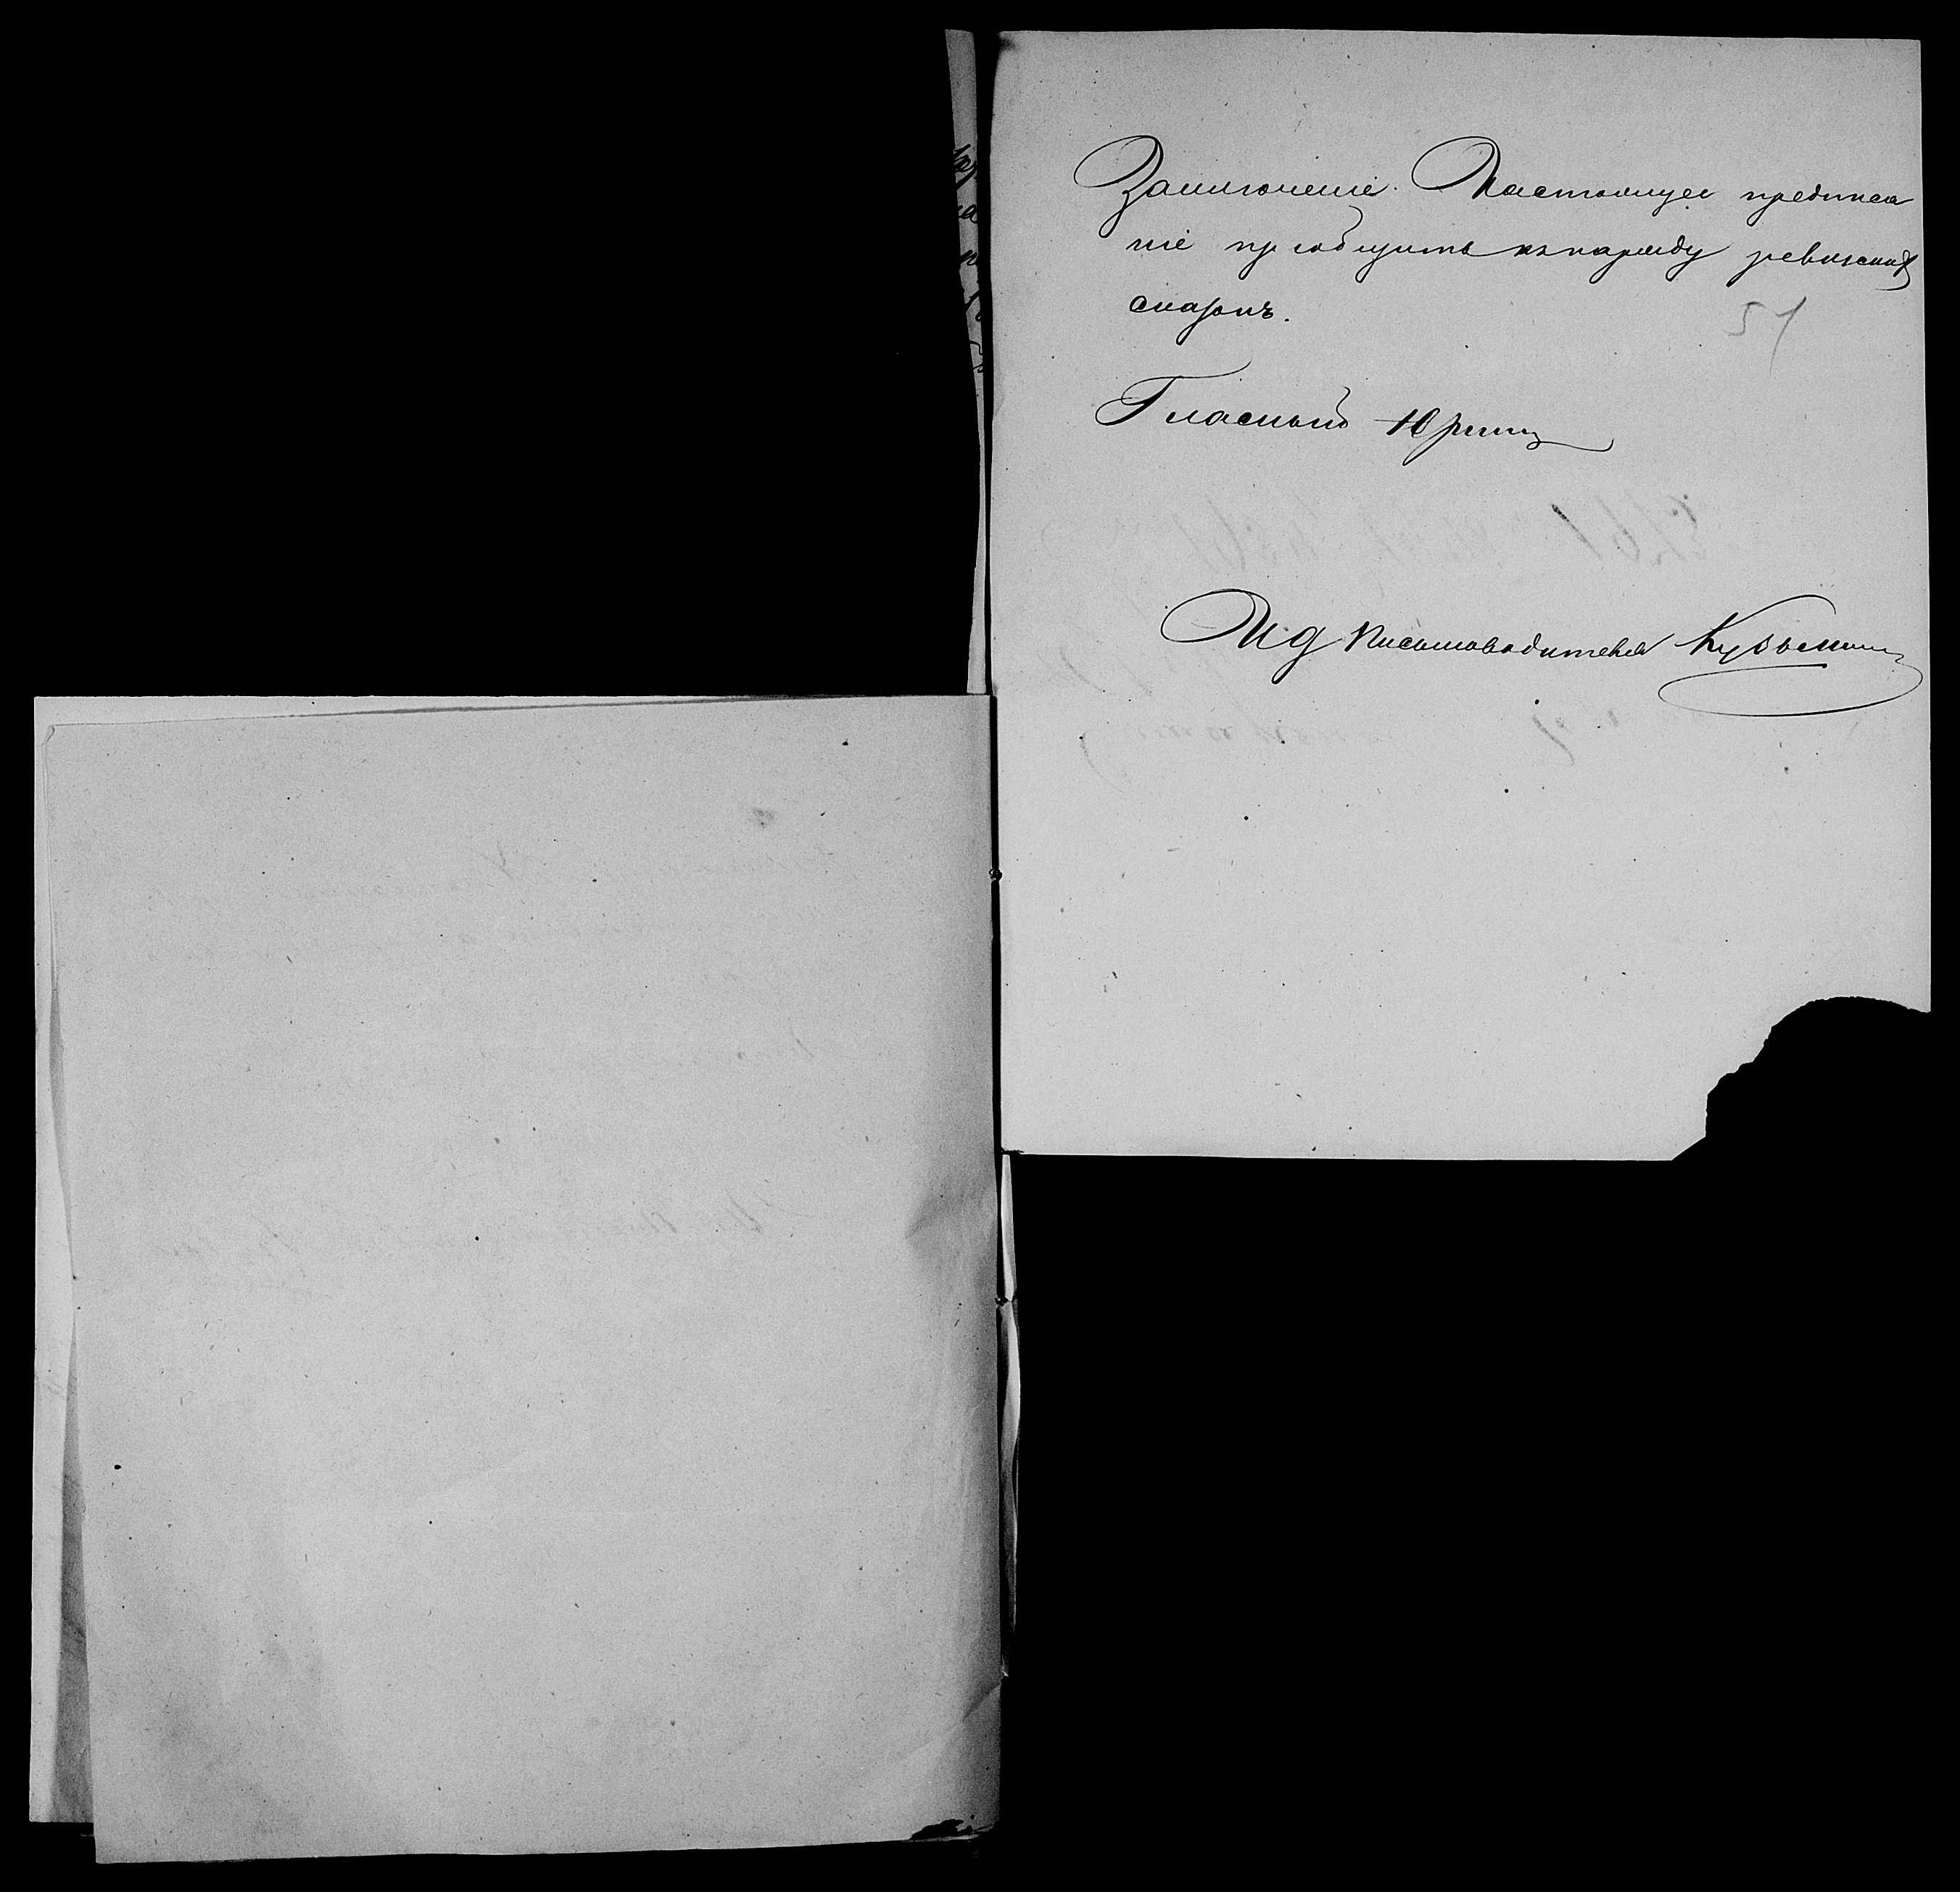 Заключеніе. Настоящее предписа
ніе пріобщить къ наряду ревизскихъ
сказокъ.
51
Гласный Юринъ
И д Письмоводителя Кузьминъ